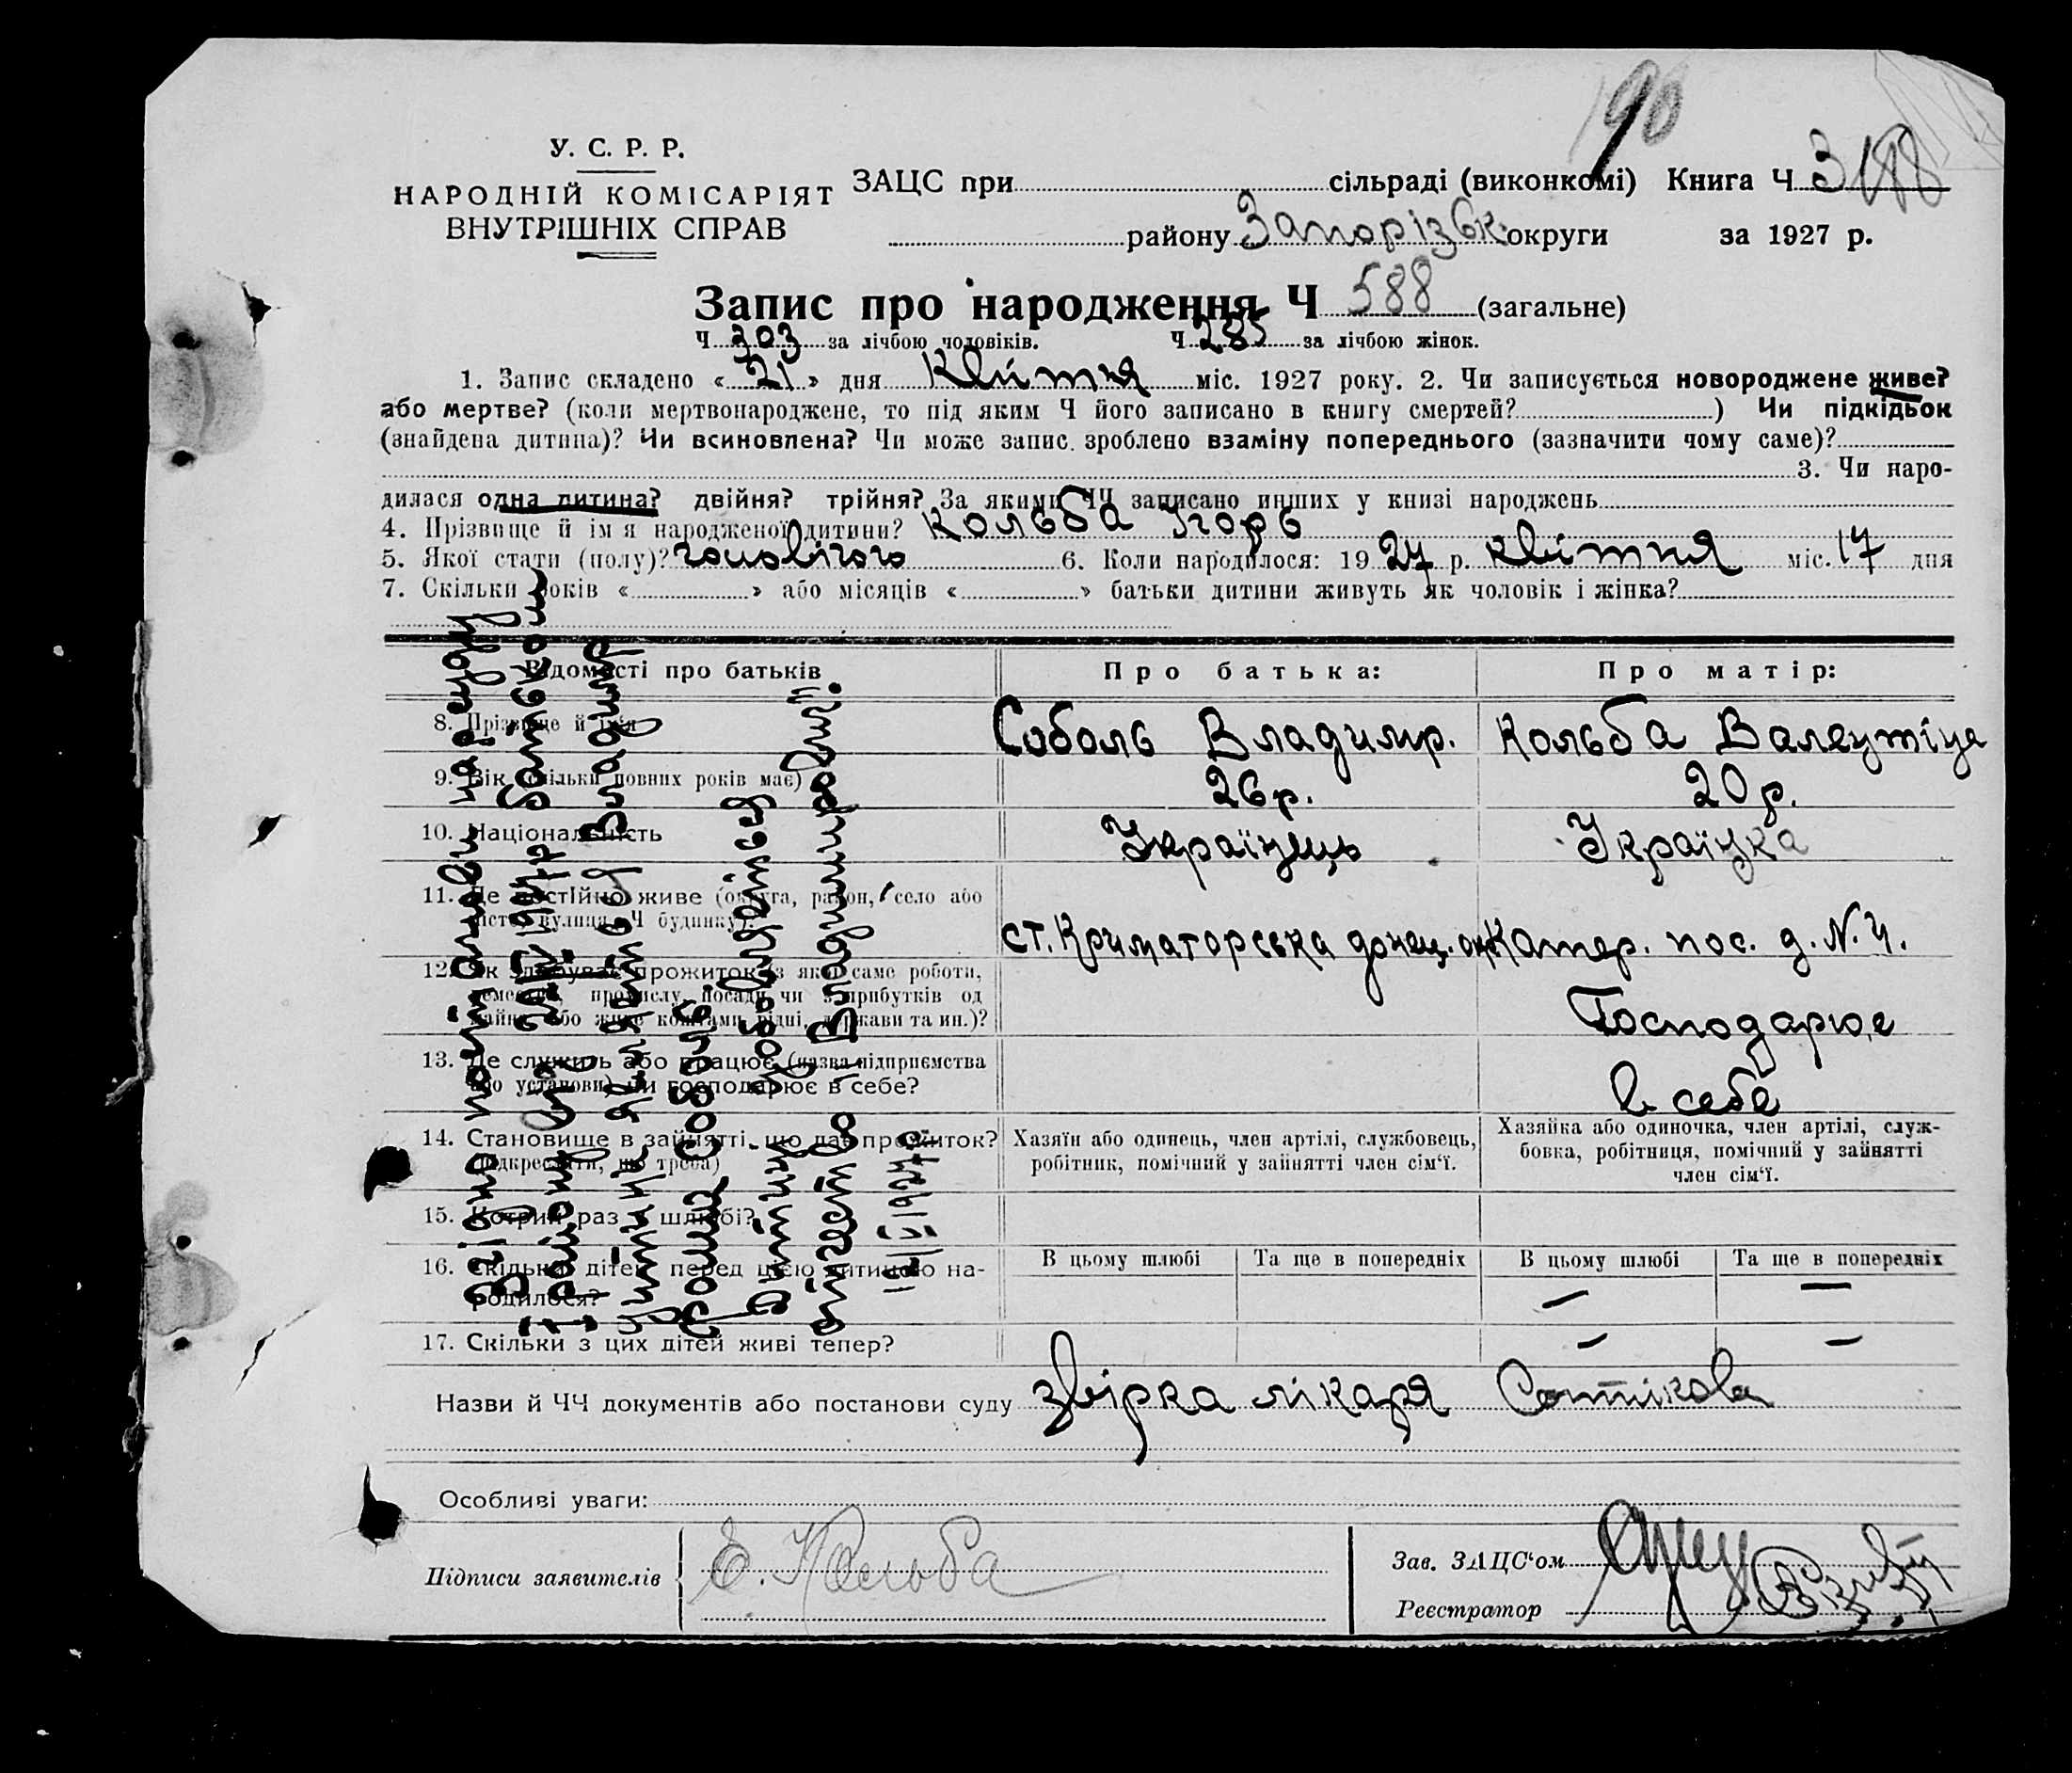 190
У. С. Р. Р.
НАРОДНІЙ КОМІСАРІЯТ
ВНУТРІШНІХ СПРАВ
ЗАЦС при сільраді (виконкомі) Книга Ч 3 188
району Запорізьк. округи за 1927 р.
Запис про народження Ч 588 (загальне)
Ч 303 за лічбою чоловіків. Ч 285 за лічбою жінок.
1. Запис складено « 21 » дня Квітня міс. 1927 року. 2. Чи записується новороджене живе?
або мертве? (коли мертвонароджене, то під яким Ч його записано в книгу смертей? ) Чи підкідьок
(знайдена дитина)? Чи всиновлена? Чи може запис зроблено взаміну попереднього (зазначити чому саме)?
3. Чи наро-
дилася одна дитина? двійня? трійня? За якими ЧЧ записано инших у книзі народжень
4. Прізвище й ім'я народженої дитини? Кольба Ігорь
5. Якої стати (полу)? чоловічого 6. Коли народилося: 19 27 р. квітня міс. 17 дня
7. Скільки років « » або місяців « » батьки дитини живуть як чоловік і жінка?
Відомості про батьків Про батька: Про матір:
8. Прізвище й ім'я Соболь Владимир. Кольба Валентіна
9. Вік (скільки повних років має) 26 р. 20 р.
10. Національність Українець Українка
11. Де постійно живе (округа, район, село або
місто, вулиця, Ч будинку)? ст. Криматорська донец. ок Катер. пос. д. N. 4.
12. Як здобуває прожиток (з якої саме роботи,
ремества, промислу, посади чи з прибутків од
майна або живе коштами рідні, держави та ин.)? Господарює
13. Де служить або працює (назва підприємства
або установи) чи господарює в себе? в себе
14. Становище в зайнятті, що дає прожиток?
(підкреслити, що треба)
Хазяїн або одинець, член артілі, службовець,
робітник, помічний у зайнятті член сім'ї.
Хазяйка або одиночка, член артілі, служ-
бовка, робітниця, помічний у зайнятті
член сім'ї.
15. Котрий раз у шлюбі?
16. Скільки дітей перед цією дитиною на-
родилося?
В цьому шлюбі Та ще в попередніх В цьому шлюбі Та ще в попередніх
— —
17. Скільки з цих дітей живі тепер? — —
Назви й ЧЧ документів або постанови суду звірка лікаря Сотнікова
Особливі уваги:
Підписи заявителів Є. Кольба
Зав. ЗАЦС'ом
Реєстратор
Згідно постанови нарсуду
батьком
дитини Владимир
Соболь
Владимирович.